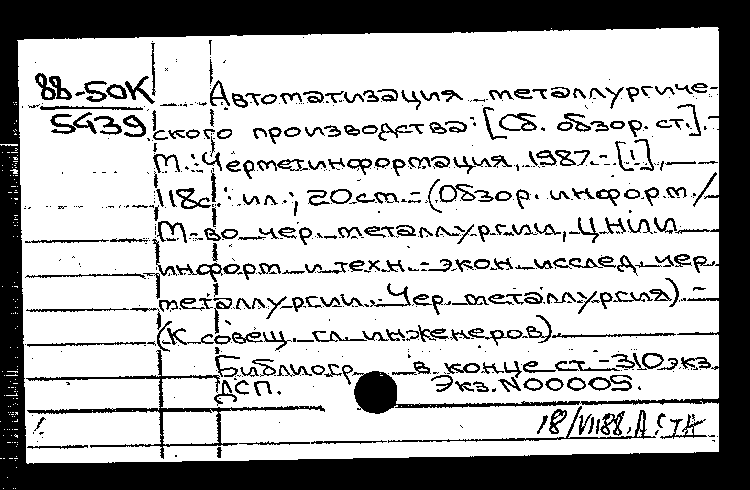 88-50К
5439
Автоматизация металлургиче-
ского производства: [Сб. обзор. ст.].-
М.: Черметинформация, 1987.- [1],
118с.: ил.; 20см.- (Обзор. информ./
М-во чер. металлургии, ЦНИИ
информ. и техн.-экон. исслед. чер.
металлургии. Чер. металлургия) -
(К совещ. гл. инженеров).
Библиогр. в конце ст.-310экз.
ДСП. Экз.N00005.
18/VII88.